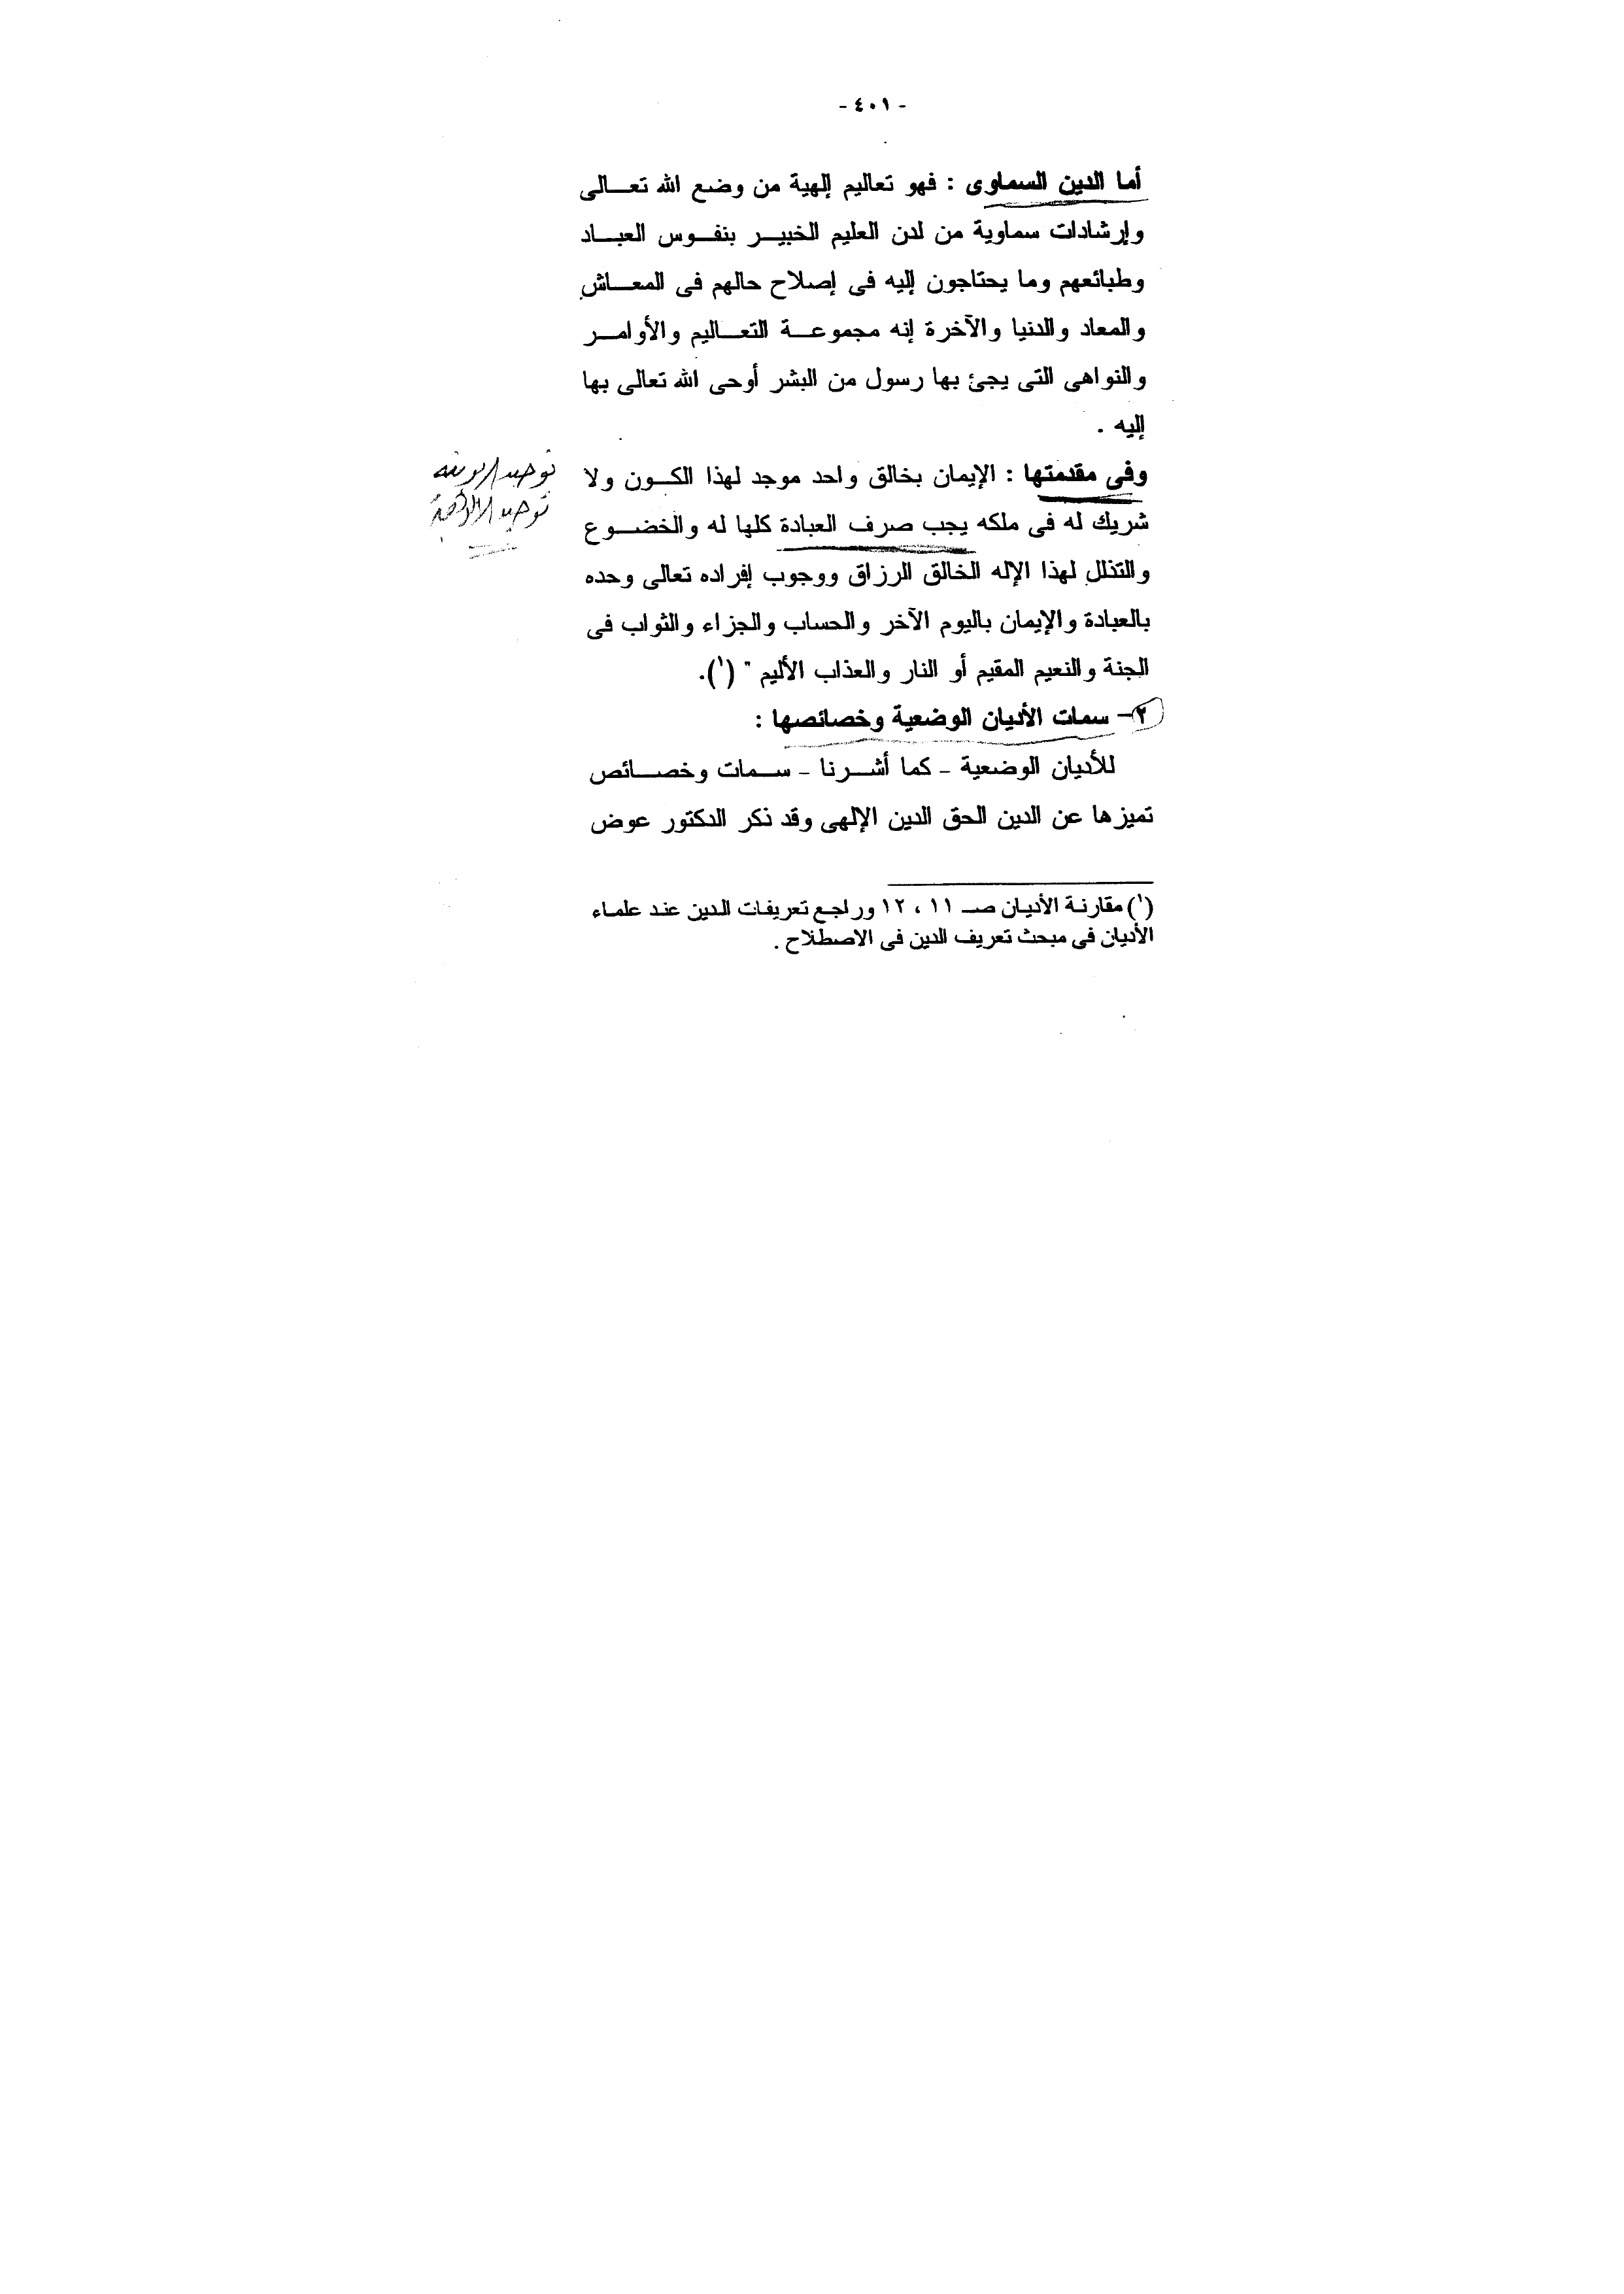 - ٤٠١ -
أما الدين السماوى : فهو تعاليم إلهية من وضع الله تعـــالى
وإرشادات سماوية من لدن العليم الخبيـــر بنفـــوس العبـــاد
وطبائعهم وما يحتاجون إليه فى إصلاح حالهم فى المعـــاش
والمعاد والدنيا والآخرة إنه مجموعـــة التعـــاليم والأوامـــر
والنواهى التى يجئ بها رسول من البشر أوحى الله تعالى بها
إليه .
وفى مقدمتها : الإيمان بخالق واحد موجد لهذا الكـــون ولا
شريك له فى ملكه يجب صرف العبادة كلها له والخضـــوع
والتذلل لهذا الإله الخالق الرزاق ووجوب إفراده تعالى وحده
بالعبادة والإيمان باليوم الآخر والحساب والجزاء والثواب فى
الجنة والنعيم المقيم أو النار والعذاب الأليم " (١).
توحيد الربوبية
توحيد الألوهية
٢- سمات الأديان الوضعية وخصائصها :
للأديان الوضعية - كما أشـــرنا - ســـمات وخصـــائص
تميزها عن الدين الحق الدين الإلهى وقد ذكر الدكتور عوض
(١) مقارنة الأديان صـ ١١ ، ١٢ وراجع تعريفات الدين عند علماء
الأديان فى مبحث تعريف الدين فى الاصطلاح .